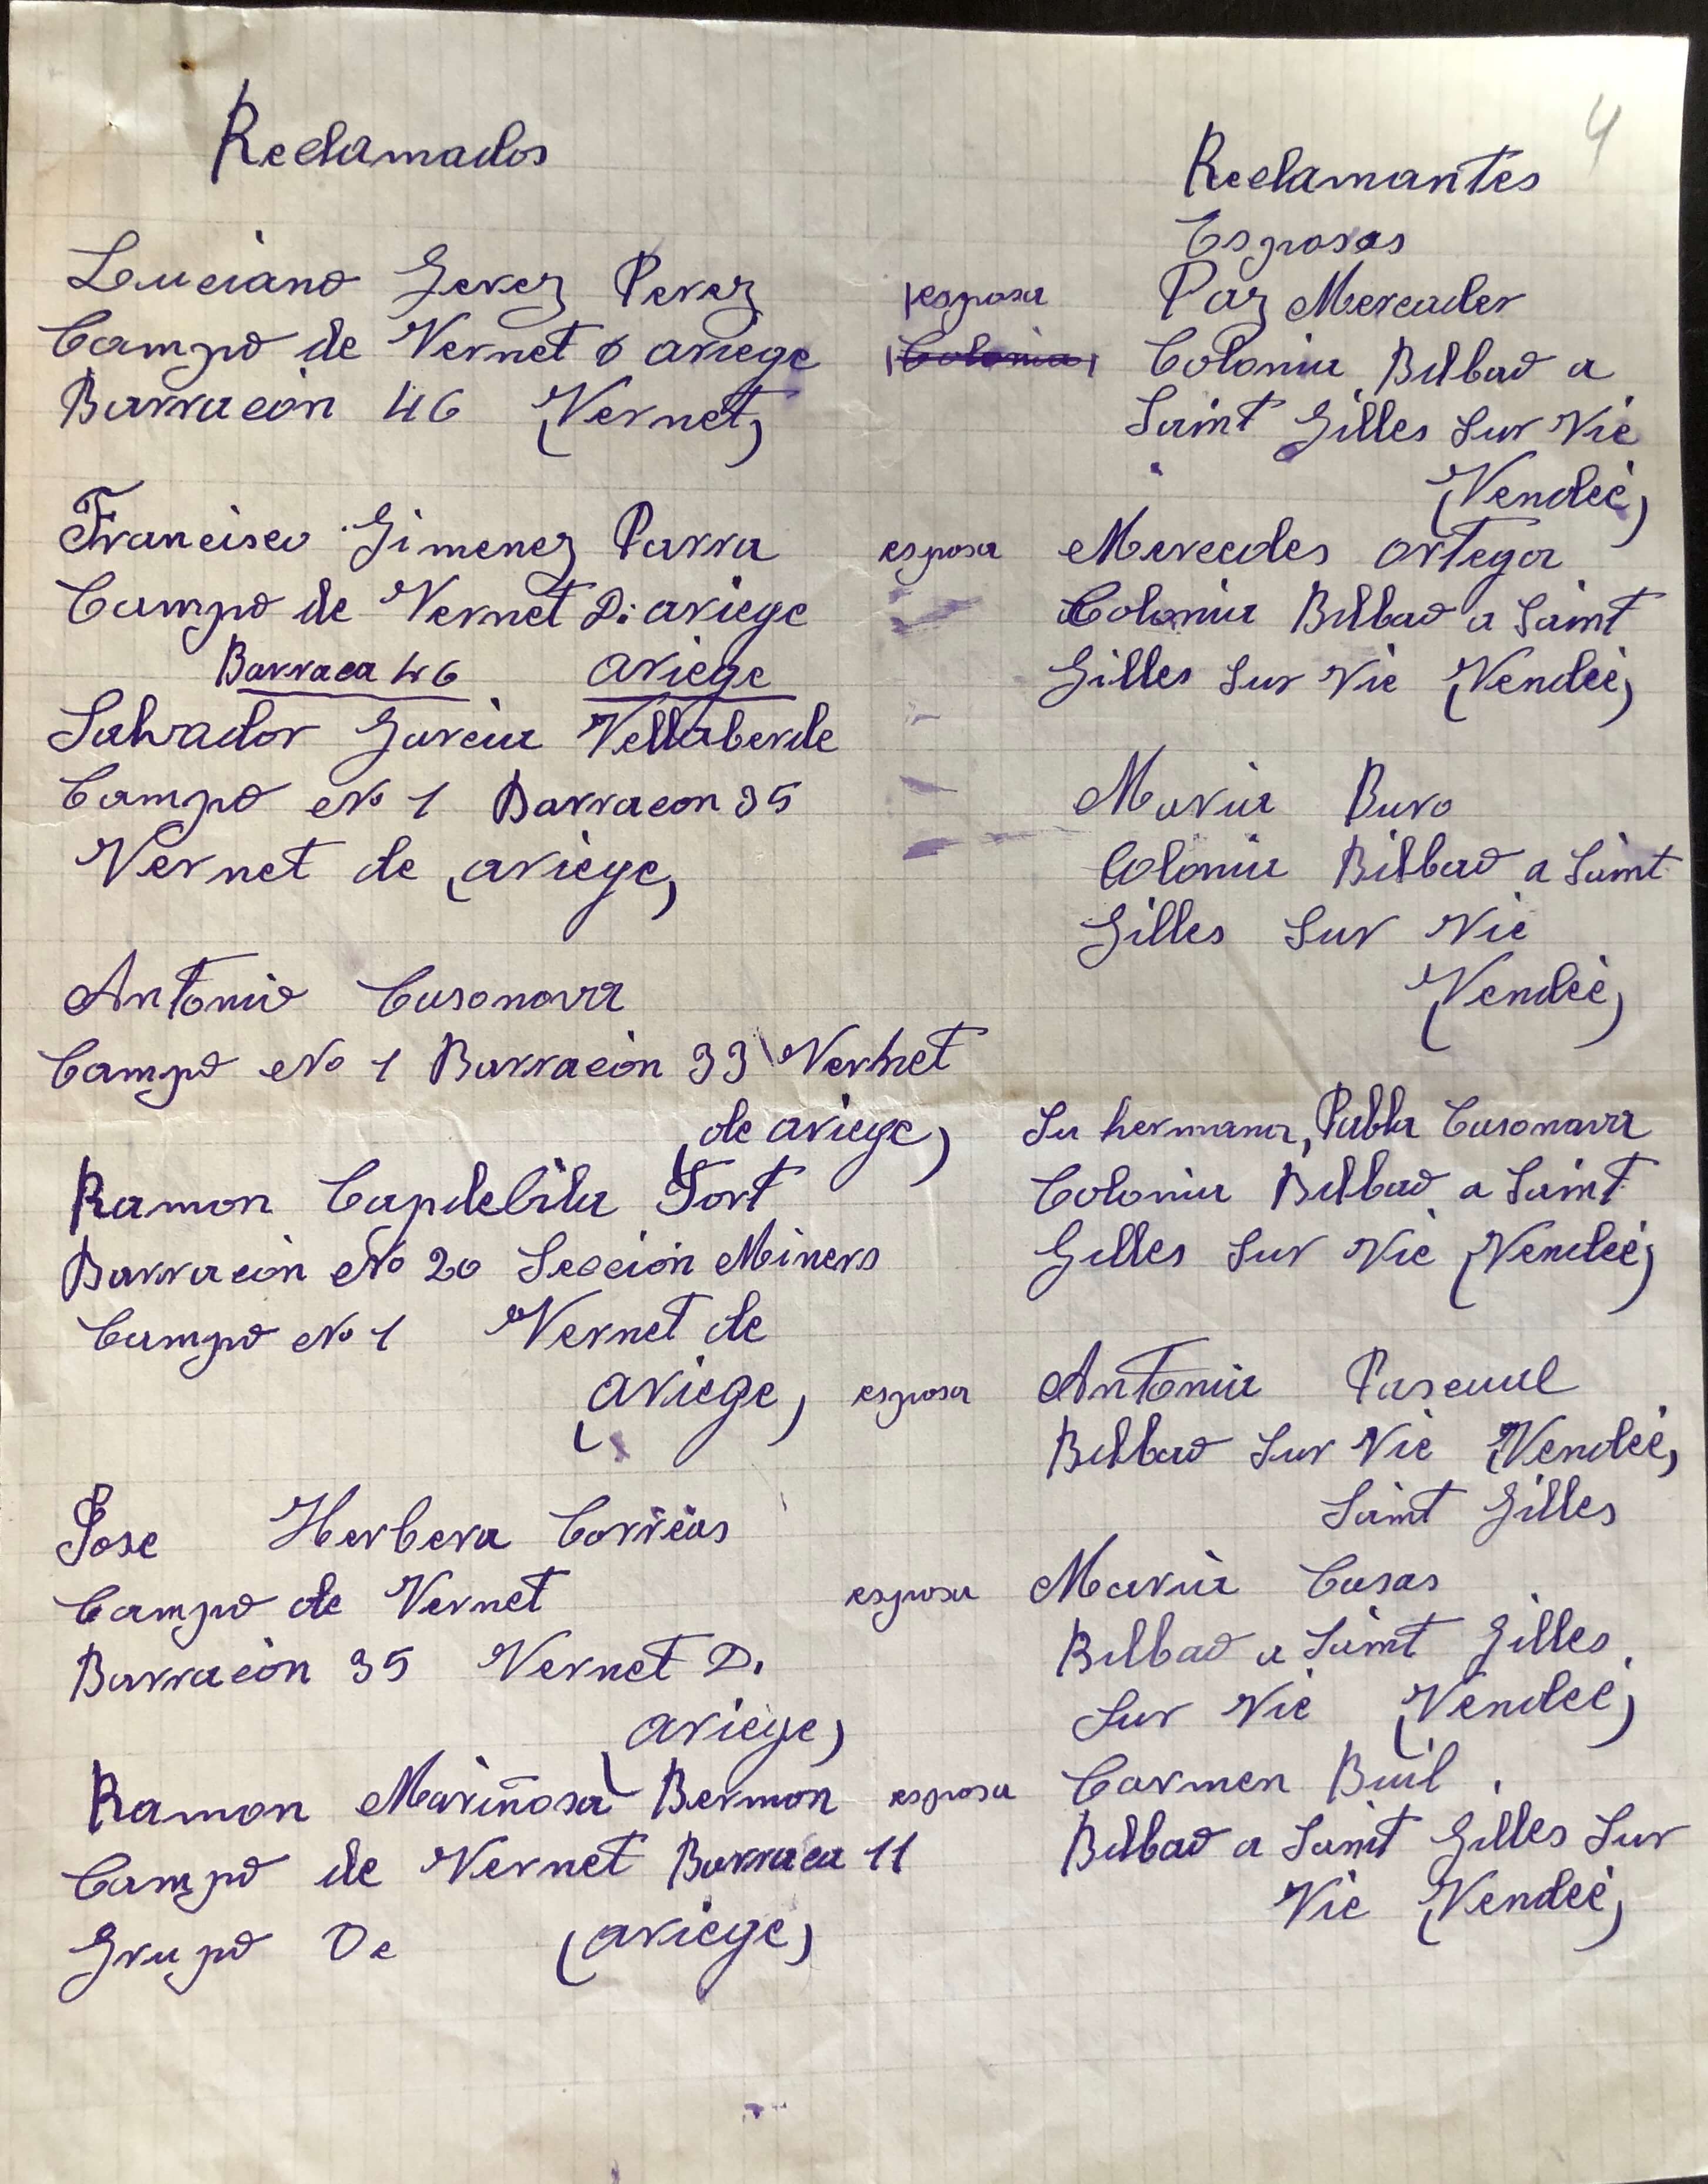 4
Reclamados
Reclamantes
Esposas
Luciano Gerez Perez
esposa
Paz Mercader
Campo de Vernet D ariege
Colonia
Colonia Bilbao a
Barracon 46 (Vernet)
Saint Gilles Sur Vie
(Vendeé)
Francisco Gimenez Parra
esposa
Mercedes ortega
Campo de Vernet D. ariege
Colonia Bilbao a Saint
Barraca 46 ariege
Gilles Sur Vie (Vendeé)
Salvador Garcia Vellaberde
Campo No 1 Barracon 35
Maria Buro
Vernet de (ariege)
Colonia Bilbao a Saint
Gilles Sur Vie
(Vendeé)
Antonio Casanova
Campo No 1 Barracon 33 Vernet
(de ariege)
Su hermana, Pabla Casanova
Colonia Bilbao a Saint
Gilles Sur Vie (Vendeé)
Ramon Capdebila Fort
Barracón No 20 Sección Miners
Campo No 1 Vernet de
(ariege)
esposa
Antonia Pascual
Bilbao Sur Vie (Vendeé)
Saint Gilles
Jose Herbera Correas
Campo de Vernet
esposa
Maria Casas
Barracón 35 Vernet D.
Bilbao a Saint Gilles
(ariege)
Sur Vie (Vendeé)
Ramon Mariñosa Bermon
esposa
Carmen Buil
Campo de Vernet Barraca 11
Bilbao a Saint Gilles Sur
Grupo De (ariege)
Vie (Vendeé)